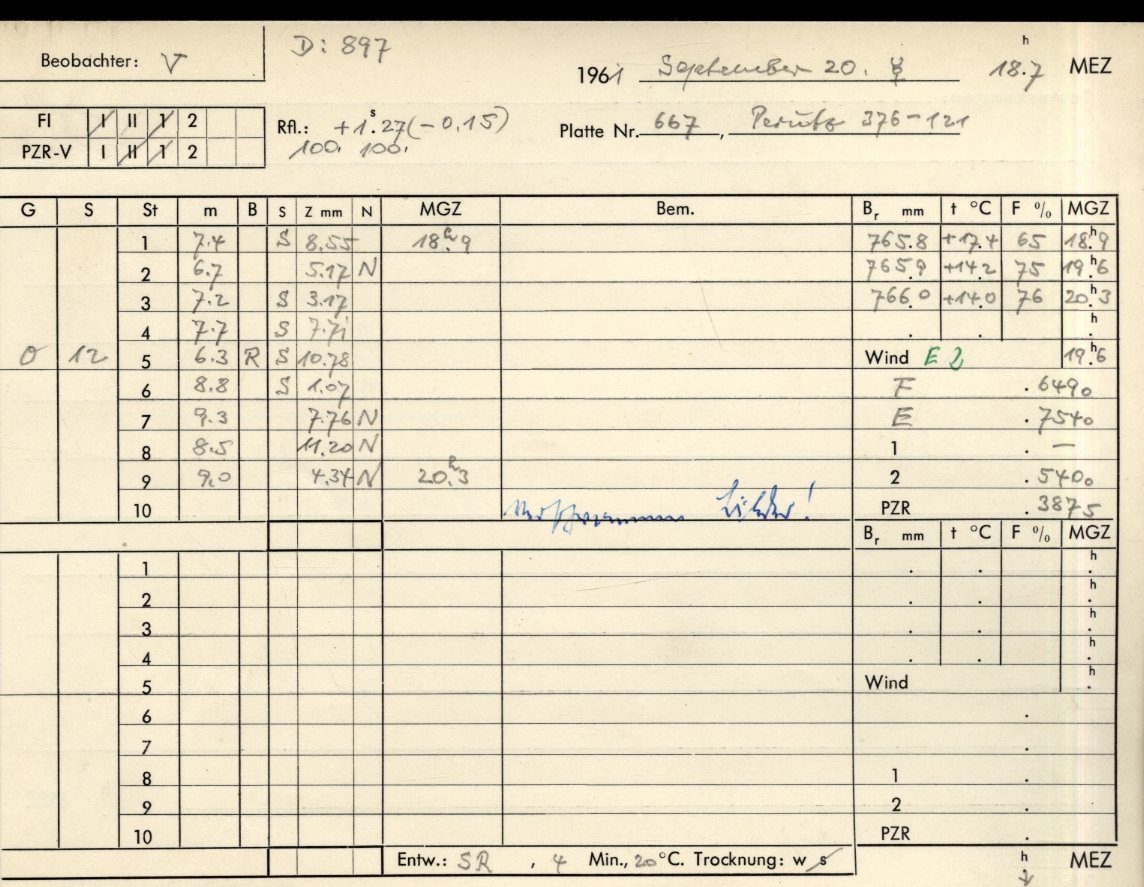 Beobachter: V D: 897 1961 September 20. ☿ 18.ʰ7 MEZ
FI I II 1 2 Rfl.: +1.ˢ27(-0.15) Platte Nr. 667, Perutz 376-121
PZR-V I II 1 2 100. 100.
G S St m B S Z mm N MGZ Bem. Bᵣ mm t °C F % MGZ
1 7.4 S 8.55 18.ʰ9 765.8 +17.4 65 18.ʰ9
2 6.7 5.17 N 765.9 +14.2 75 19.ʰ6
3 7.2 S 3.17 766.0 +14.0 76 20.ʰ3
4 7.7 S 7.71 . . ʰ.
0 12 5 6.3 R S 10.78 Wind E 2 19.ʰ6
6 8.8 S 1.07 F .6490
7 9.3 7.76 N E .7540
8 8.5 11.20 N 1 . —
9 9.0 4.34 N 20.ʰ3 2 .5400
10 Bilder! PZR .3875
Bᵣ mm t °C F % MGZ
1 . . ʰ.
2 . . ʰ.
3 . . ʰ.
4 . . ʰ.
5 Wind ʰ.
6 .
7 .
8 1 .
9 2 .
10 PZR .
Entw.: SR , 4 Min., 20 °C. Trocknung: w s ʰ MEZ